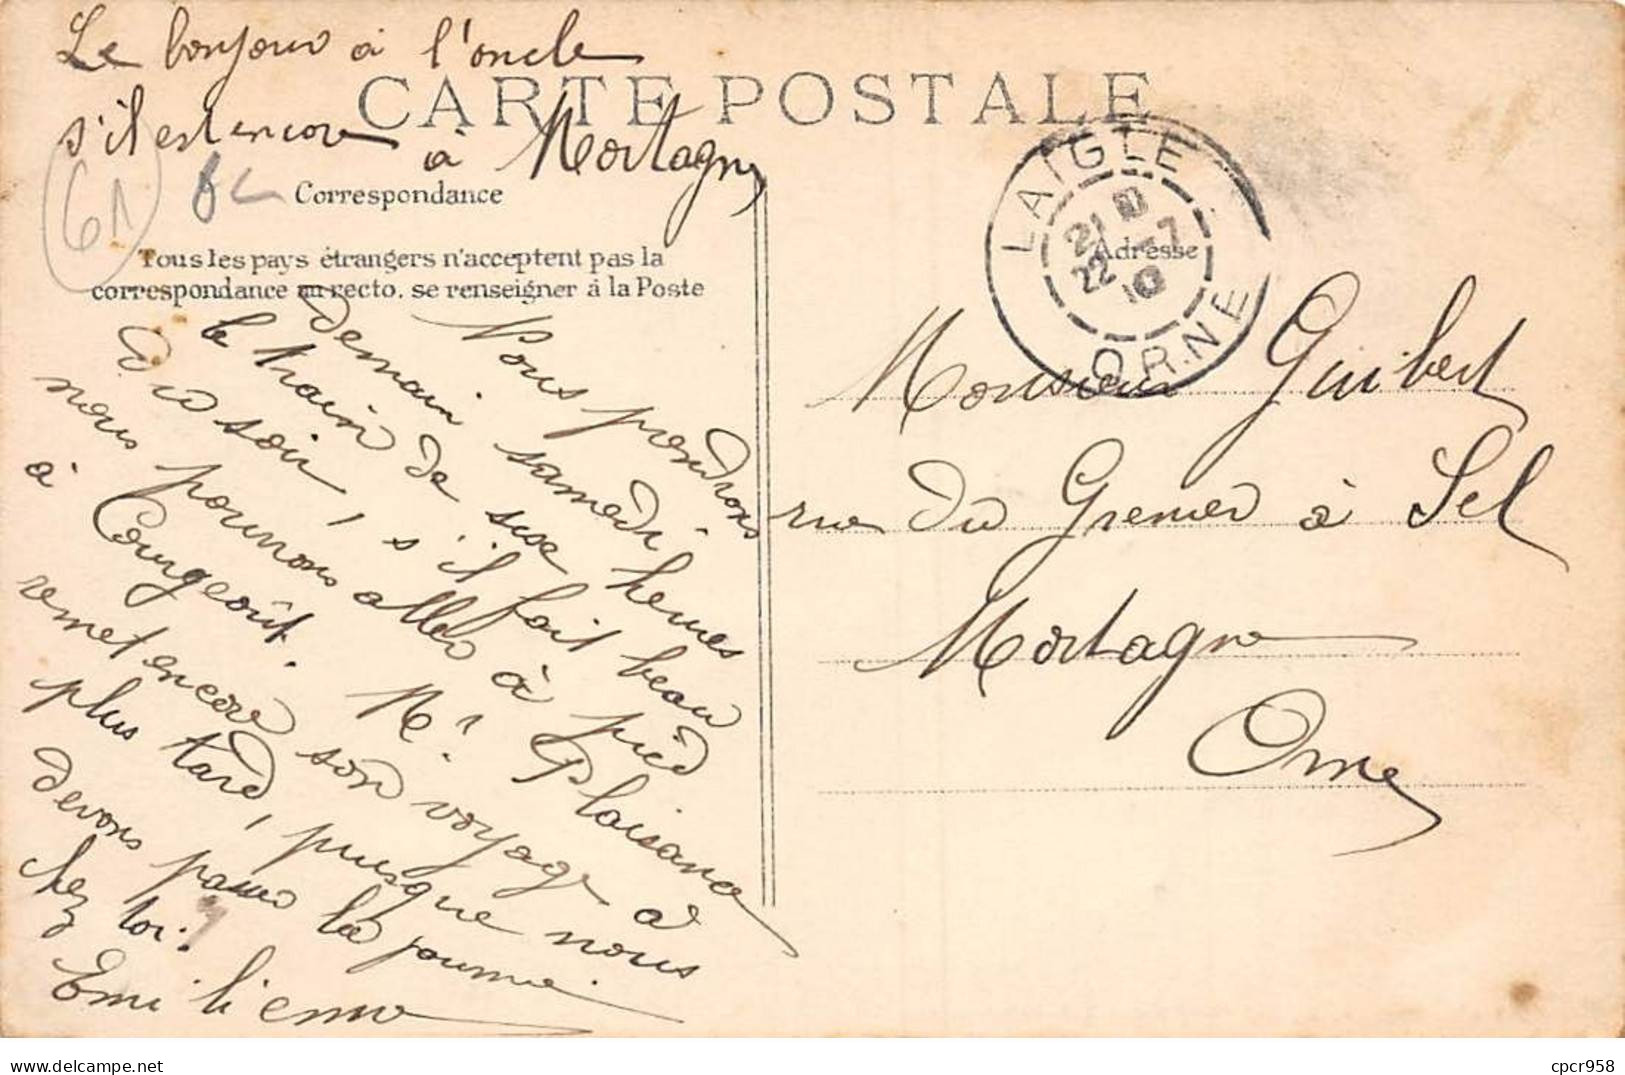 Le bonjour à l'oncle
s'il est encore à Mortagne
CARTE POSTALE
61
Correspondance
Tous les pays étrangers n'acceptent pas la
correspondance au recto. se renseigner à la Poste
Nous prendrons
demain samedi
le train de six heures
du soir, s'il fait beau
nous pourrons aller à pied
à Courgeoût. Mr. Plaisance
remet encore son voyage à
plus tard, puisque nous
devons passer la journée
chez toi.
Emilienne
LAIGLE
ORNE
21
22 -7
10
Adresse
Monsieur Guibert
rue du Grenier à Sel
Mortagne
Orne
delcampe.net
cpcr958